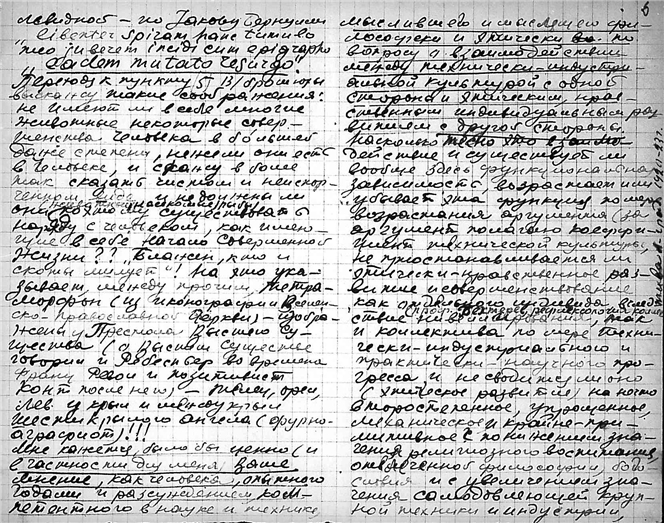 левидной – по Якову Бернулли
libenter spiram hanc tumulo
meo juberem incidi cum epigrapho
"Eadem mutata resurgo"
Перехожу к пункту 5
выскажу такие соображения:
не имеют ли в себе многие
животные некоторые совер-
шенства человека в большей
даже степени, нежели они есть
в человеке, и скажу в более
так сказать чистом и неиспор-
ченном виде и не должны ли
они поэтому существовать
наряду с человеком, как имею-
щие в себе начало совершенной
жизни??, Блажен, кто и
скоты милует"! На это ука-
зывает между прочим, Тетра-
морфы (из иконографии Вселен-
ско-православной Церкви) – изобра-
жены у Престола Высшего Су-
щества (о Высшем Существе
говорил и Робеспьер во времена
и позитивист
Конт после него) телец, орел,
лев и крылья между крыл
шестикрылого ангела
!!!
Мне кажется, было бы ценно (и
в частности для меня, Ваше
мнение, как человека, опытного
годами и рассуждением, ком-
петентного в науке и технике,
5
мыслившего и мыслящего фи-
лософски и этически по
вопросу о взаимодействии
между технически-индустри-
альной культурой с одной
стороны и этическим, нрав-
ственным индивидуальным раз
витием с другой стороны,
насколько тесно это взаимо-
действие и существует ли
вообще здесь функциональная
зависимость, возрастает или
убывает эта функция по мере
возрастания аргумента (за
аргумент полагаю коэффи-
циент технической культуры,
не приостанавливается ли
этически-нравственное раз-
витие и совершенствование
как отдельного индивида
так
и коллектива по мере техни-
чески-индустриального и
практически-научного про-
гресса и не сводится ли оно
(этическое развитие) на нечто
второстепенное, упрощенное,
механическое и крайне-при-
митивное с понижением зна-
чения религиозного воспитания,
отвлеченной философии, бого-
словия и с увеличением зна-
чения самодовлеющей круп-
ной техники и индустрии